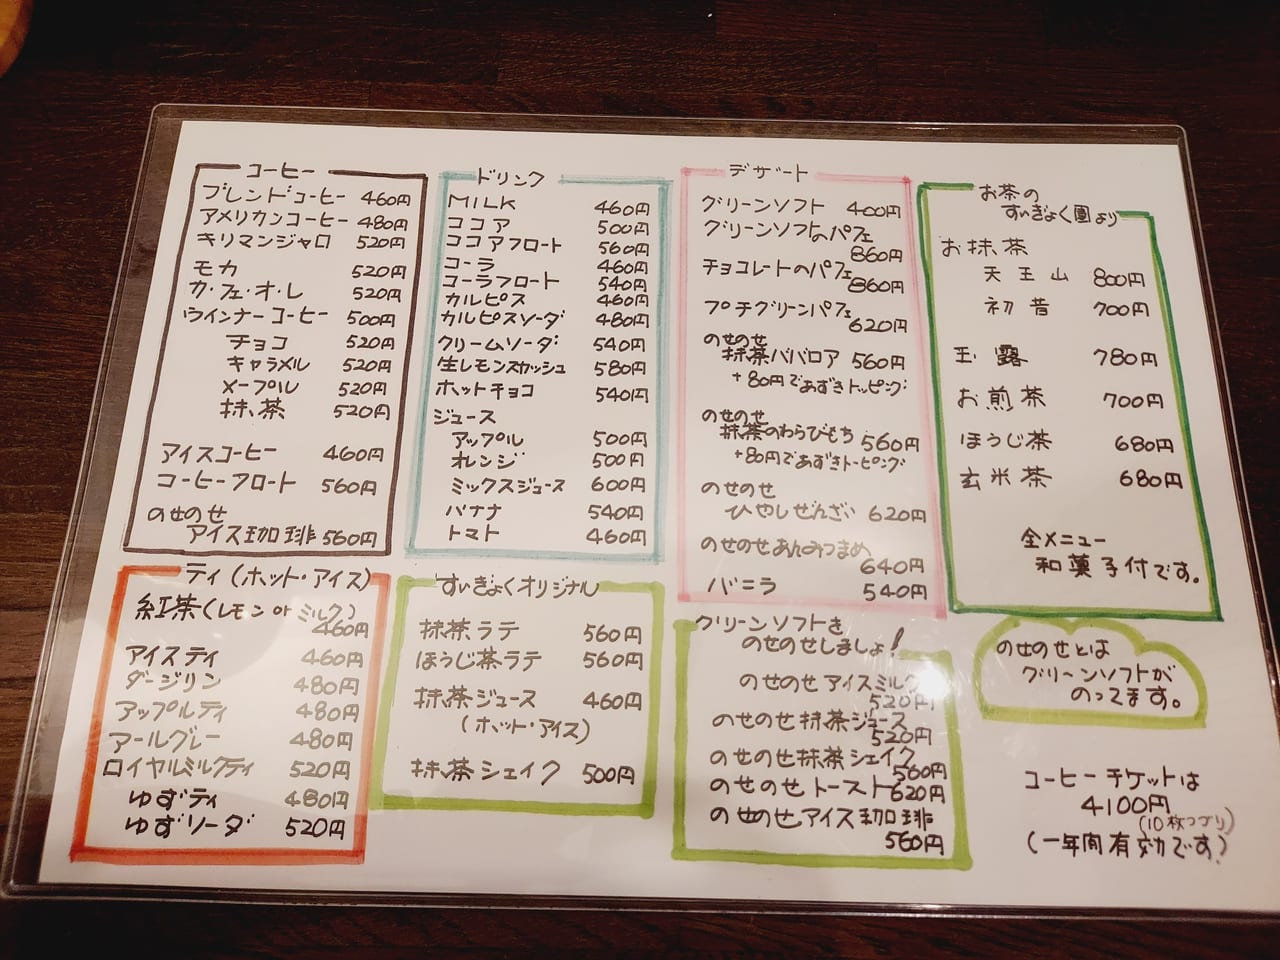 コーヒー
ブレンドコーヒー 460円
アメリカンコーヒー 480円
キリマンジャロ 520円
モカ 520円
カ・フェ・オ・レ 520円
ウインナーコーヒー 500円
チョコ 520円
キャラメル 520円
メープル 520円
抹茶 520円
アイスコーヒー 460円
コーヒーフロート 560円
のせのせ
アイス珈琲 560円
ドリンク
MILK 460円
ココア 500円
ココアフロート 560円
コーラ 460円
コーラフロート 540円
カルピス 460円
カルピスソーダ 480円
クリームソーダ 540円
生レモンスカッシュ 580円
ホットチョコ 540円
ジュース
アップル 500円
オレンジ 500円
ミックスジュース 600円
バナナ 540円
トマト 460円
デザート
グリーンソフト 400円
グリーンソフトのパフェ
860円
チョコレートのパフェ
860円
プチグリーンパフェ
620円
のせのせ
抹茶ババロア 560円
+80円であずきトッピング
のせのせ
抹茶のわらびもち 560円
+80円であずきトーピング
のせのせ
ひやしぜんざい 620円
のせのせあんみつまめ
640円
バニラ 540円
お茶の
すいぎょく園より
お抹茶
天王山 800円
初昔 700円
玉露 780円
お煎茶 700円
ほうじ茶 680円
玄米茶 680円
全メニュー
和菓子付です。
ティ(ホット・アイス)
紅茶(レモン or ミルク)
460円
アイスティ 460円
ダージリン 480円
アップルティ 480円
アールグレー 480円
ロイヤルミルクティ 520円
ゆずティ 480円
ゆずソーダ 520円
すいぎょくオリジナル
抹茶ラテ 560円
ほうじ茶ラテ 560円
抹茶ジュース 460円
(ホット・アイス)
抹茶シェイク 500円
グリーンソフトを
のせのせしましょ!
のせのせアイスミルク
520円
のせのせ抹茶ジュース
520円
のせのせ抹茶シェイク
560円
のせのせトースト 620円
のせのせアイス珈琲
560円
のせのせとは
グリーンソフトが
のってます。
コーヒーチケットは
4100円
(10枚つづり)
(一年間有効です)